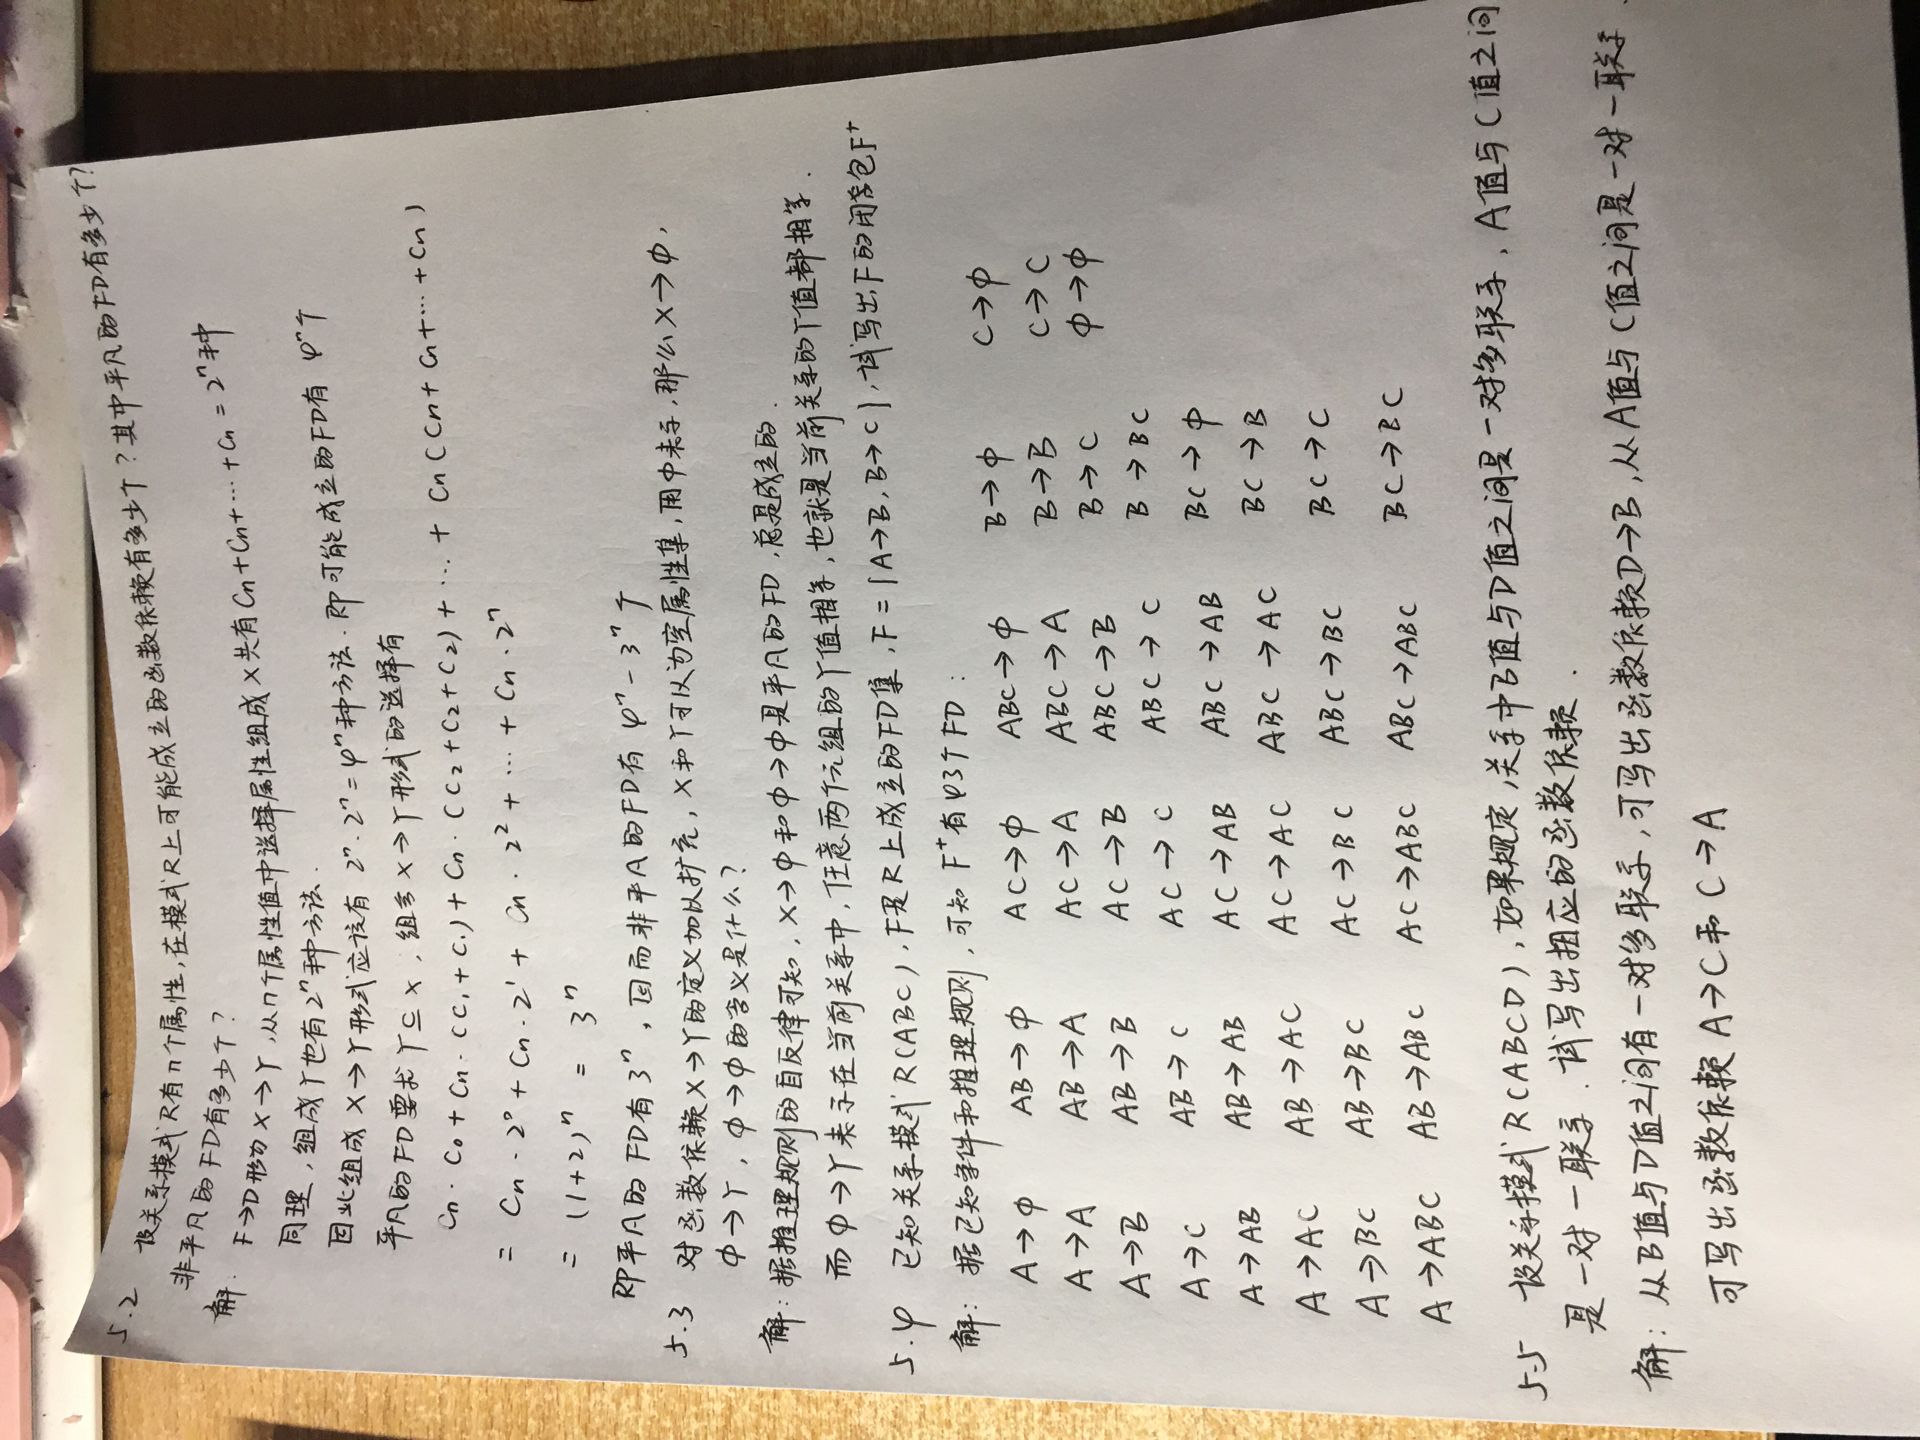 5.2 设关系模式R有n个属性,在模式R上可能成立的函数依赖有多少个?其中平凡的FD有多少个?
非平凡的FD有多少个?
解: F→D形为 X→Y,从n个属性值中选择属性组成X共有 Cn+Cn+…+Cn = 2ⁿ种
同理,组成Y也有2ⁿ种方法.
因此组成 X→Y形式应该有 2ⁿ·2ⁿ=4ⁿ种方法.即可能成立的FD有 4ⁿ个
平凡的FD要求 Y⊆X,组合X→Y形式的选择有
Cn·C0+Cn·(C1+C1)+Cn·(C2+C2+C2)+…+Cn(Cn+Cn+…+Cn)
= Cn·2⁰+Cn·2¹+Cn·2²+…+Cn·2ⁿ
= (1+2)ⁿ = 3ⁿ
即平凡的FD有3ⁿ,因而非平凡的FD有 4ⁿ-3ⁿ个
5.3 对函数依赖X→Y的定义加以扩充,X和Y可以为空属性集,用φ表示,那么X→φ,
φ→Y,φ→φ的含义是什么?
解:据推理规则的自反律可知,X→φ和φ→φ是平凡的FD,总是成立的.
而φ→Y表示在当前关系中,任意两个元组的Y值相等,也就是当前关系的Y值都相等.
5.4 已知关系模式R(ABC),F是R上成立的FD集,F={A→B,B→C},试写出F的闭包F⁺
解:据已知条件和推理规则,可知F⁺有43个FD:
A→φ AB→φ AC→φ ABC→φ B→φ C→φ
A→A AB→A AC→A ABC→A B→B C→C
A→B AB→B AC→B ABC→B B→C φ→φ
A→C AB→C AC→C ABC→C B→BC
A→AB AB→AB AC→AB ABC→AB BC→φ
A→AC AB→AC AC→AC ABC→AC BC→B
A→BC AB→BC AC→BC ABC→BC BC→C
A→ABC AB→ABC AC→ABC ABC→ABC BC→BC
5.5 设关系模式R(ABCD),如果规定,关系中B值与D值之间是一对多联系,A值与C值之间
是一对一联系.试写出相应的函数依赖.
解:从B值与D值之间有一对多联系,可写出函数依赖D→B,从A值与C值之间是一对一联系.
可写出函数依赖A→C和C→A